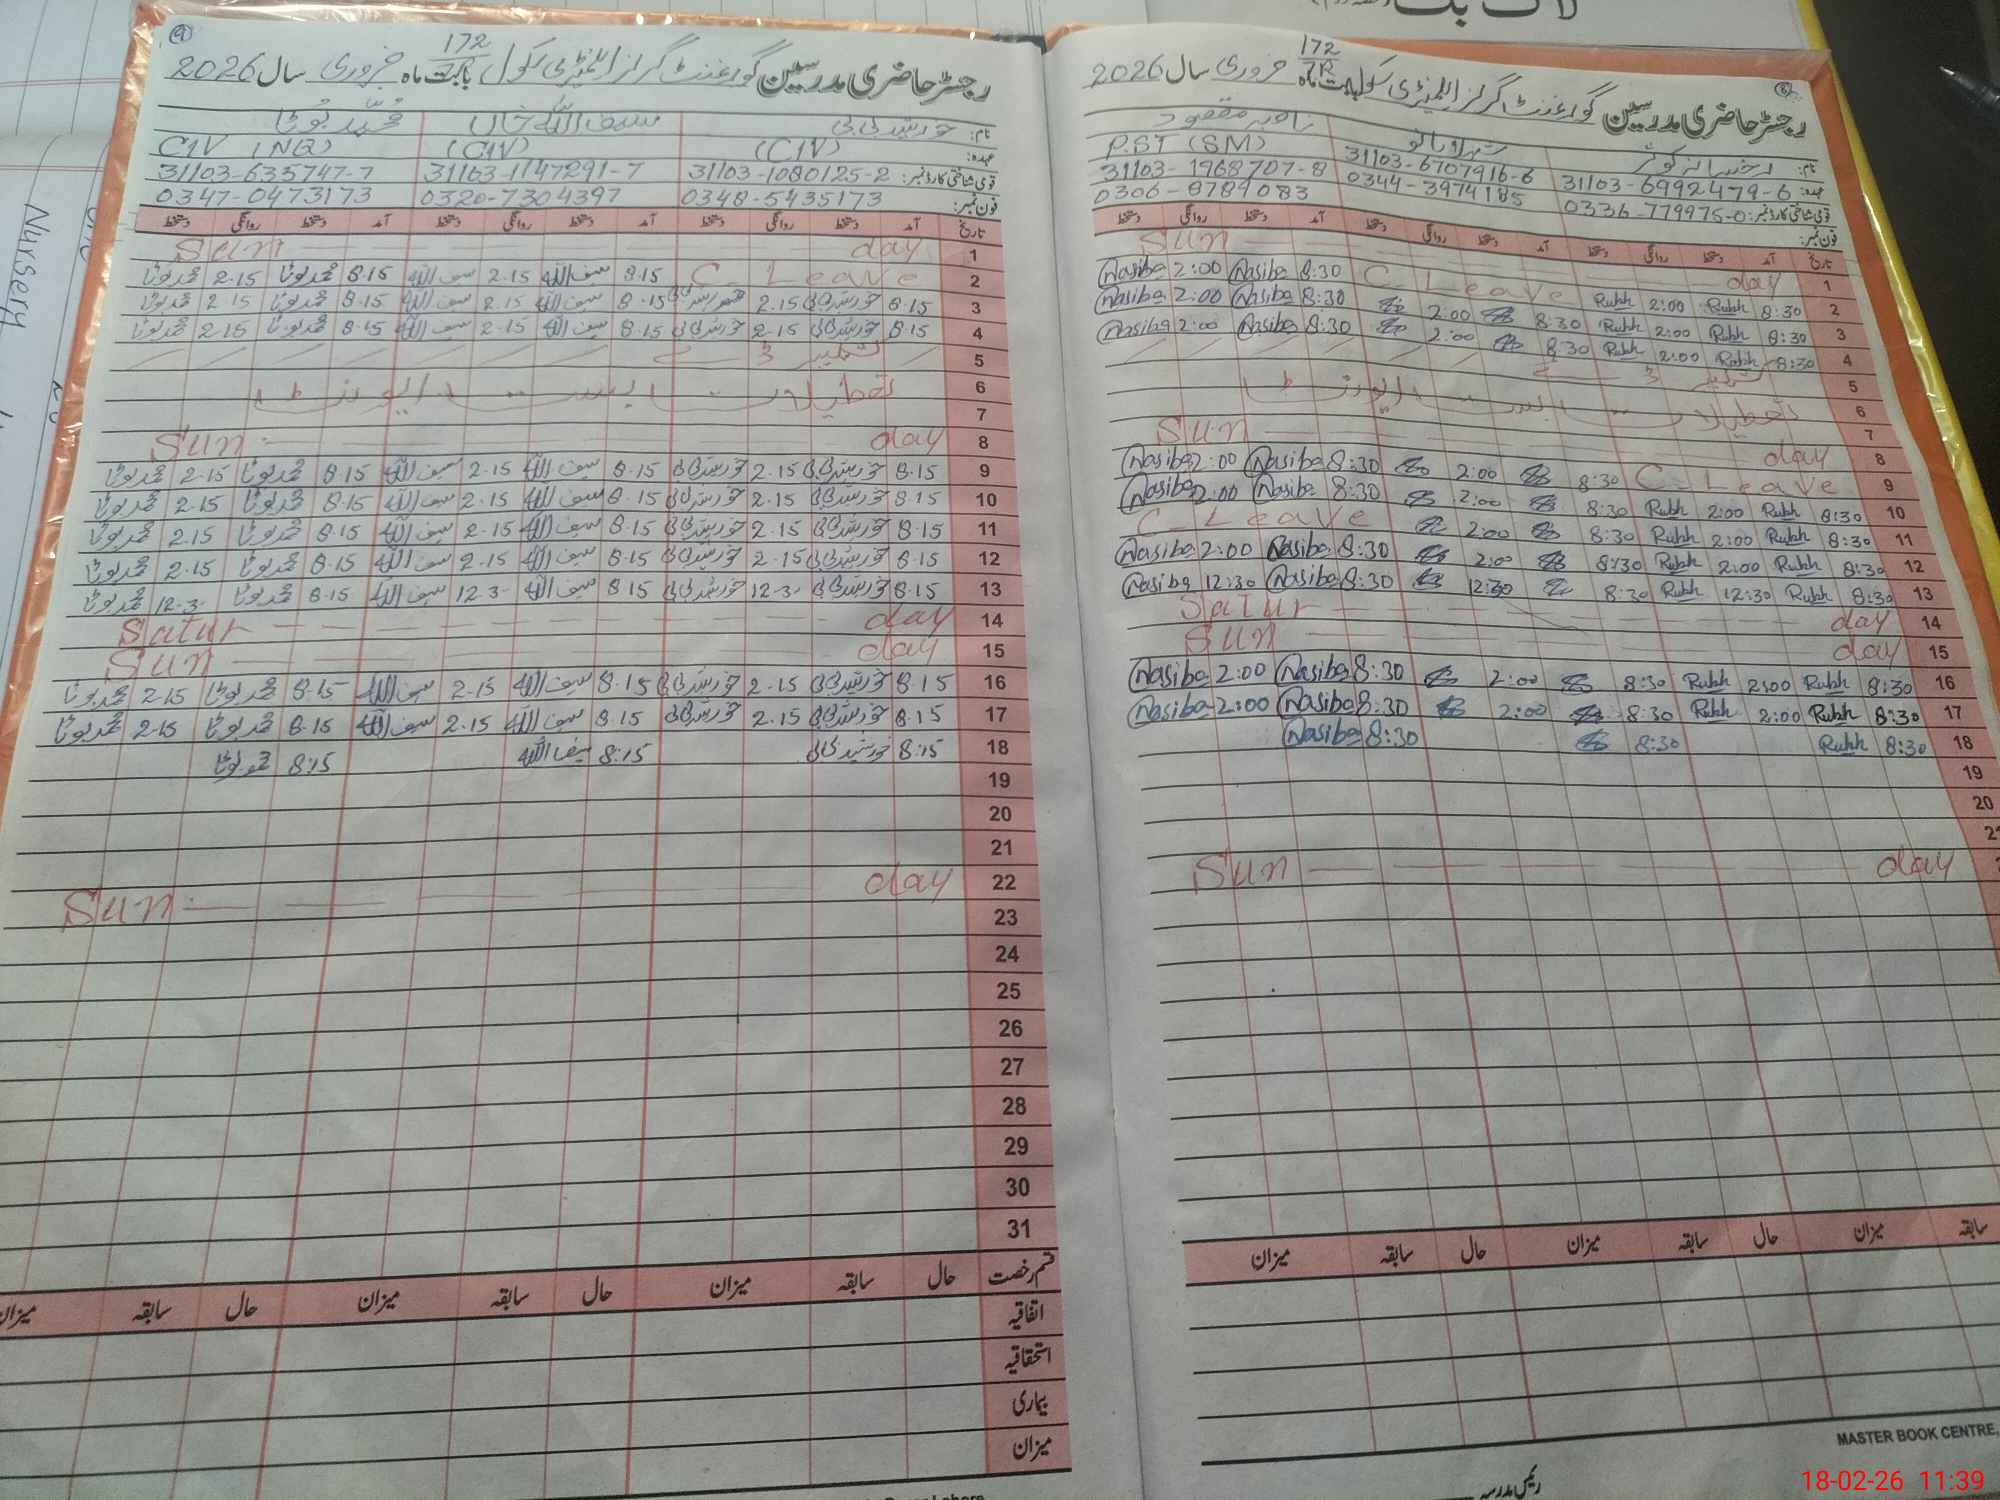 رجسٹر حاضری مدرسین گورنمنٹ گرلز ایلیمنٹری سکول 172/7R بابت ماہ فروری سال 2026
نام: خورشید بی بی سیف اللہ خاں محمد بوٹا
عہدہ: (CIV) (CIV) CIV (NQ)
قومی شناختی کارڈ نمبر: 31103-1080125-2 31103-1147291-7 31103-635747-7
فون نمبر: 0348-5435173 0320-7304397 0347-0473173
تاریخ آمد دستخط روانگی دستخط آمد دستخط روانگی دستخط آمد دستخط روانگی دستخط
1 Sun day
2 C Leave 8.15 سیف اللہ 2.15 سیف اللہ 8.15 محمد بوٹا 2.15 محمد بوٹا
3 8.15 خورشید بی بی 2.15 خورشید بی بی 8.15 سیف اللہ 2.15 سیف اللہ 8.15 محمد بوٹا 2 15 محمد بوٹا
4 8.15 خورشید بی بی 2.15 خورشید بی بی 8.15 سیف اللہ 2.15 سیف اللہ 8.15 محمد بوٹا 2.15 محمد بوٹا
5
6 تعطیلات بسنت ایونٹ
7
8 Sun day
9 8.15 خورشید بی بی 2.15 خورشید بی بی 8.15 سیف اللہ 2.15 سیف اللہ 8.15 محمد بوٹا 2.15 محمد بوٹا
10 8.15 خورشید بی بی 2.15 خورشید بی بی 8.15 سیف اللہ 2.15 سیف اللہ 8.15 محمد بوٹا 2.15 محمد بوٹا
11 8.15 خورشید بی بی 2.15 خورشید بی بی 8.15 سیف اللہ 2.15 سیف اللہ 8.15 محمد بوٹا 2.15 محمد بوٹا
12 8.15 خورشید بی بی 2.15 خورشید بی بی 8.15 سیف اللہ 2.15 سیف اللہ 8.15 محمد بوٹا 2.15 محمد بوٹا
13 8.15 خورشید بی بی 12.3- خورشید بی بی 8.15 سیف اللہ 12.3- سیف اللہ 8.15 محمد بوٹا 12.3- محمد بوٹا
14 Satur day
15 Sun day
16 8.15 خورشید بی بی 2.15 خورشید بی بی 8.15 سیف اللہ 2.15 سیف اللہ 8.15 محمد بوٹا 2.15 محمد بوٹا
17 8.15 خورشید بی بی 2.15 خورشید بی بی 8.15 سیف اللہ 2.15 سیف اللہ 8.15 محمد بوٹا 2.15 محمد بوٹا
18 8:15 خورشید بی بی 8:15 سیف اللہ 8:15 محمد بوٹا
19
20
21
22 Sun day
23
24
25
26
27
28
29
30
31
قسم رخصت حال سابقہ میزان حال سابقہ میزان حال سابقہ میزان
اتفاقیہ
استحقاقیہ
بیماری
میزان
رجسٹر حاضری مدرسین گورنمنٹ گرلز ایلیمنٹری سکول 172/7R بابت ماہ فروری سال 2026
نام: رخسانہ کوثر شہر بانو
عہدہ: P.ST (SM)
قومی شناختی کارڈ نمبر: 31103-6992479-6 31103-6707916-6 31103-1968707-8
فون نمبر: 0336-779975-0 0344-3974185 0306-8789083
تاریخ آمد دستخط روانگی دستخط آمد دستخط روانگی دستخط
1 Sun day
2 8:30 Rukh 2:00 Rukh C Leave 8:30 Nasiba 2:00 Nasiba
3 8:30 Rukh 2:00 Rukh 8:30 2:00 8:30 Nasiba 2:00 Nasiba
4 8:30 Rukh 2:00 Rukh 8:30 2:00 8:30 Nasiba 2:00 Nasiba
5
6 تعطیلات بسنت ایونٹ
7
8 Sun day
9 C-Leave 8:30 2:00 8:30 Nasiba 2:00 Nasiba
10 8:30 Rukh 2:00 Rukh 8:30 2:00 8:30 Nasiba 2:00 Nasiba
11 8:30 Rukh 2:00 Rukh 8:30 2:00 C-Leave
12 8:30 Rukh 2:00 Rukh 8:30 2:00 8:30 Nasiba 2:00 Nasiba
13 8:30 Rukh 12:30 Rukh 8:30 12:30 8:30 Nasiba 12:30 Nasiba
14 Satur day
15 Sun day
16 8:30 Rukh 2:00 Rukh 8:30 2:00 8:30 Nasiba 2:00 Nasiba
17 8:30 Rukh 2:00 Rukh 8:30 2:00 8:30 Nasiba 2:00 Nasiba
18 8:30 Rukh 8:30 8:30 Nasiba
19
20
21
Sun day
سابقہ میزان حال سابقہ میزان حال سابقہ میزان
MASTER BOOK CENTRE,
رئیس مدرسہ
Nursery
18-02-26 11:39